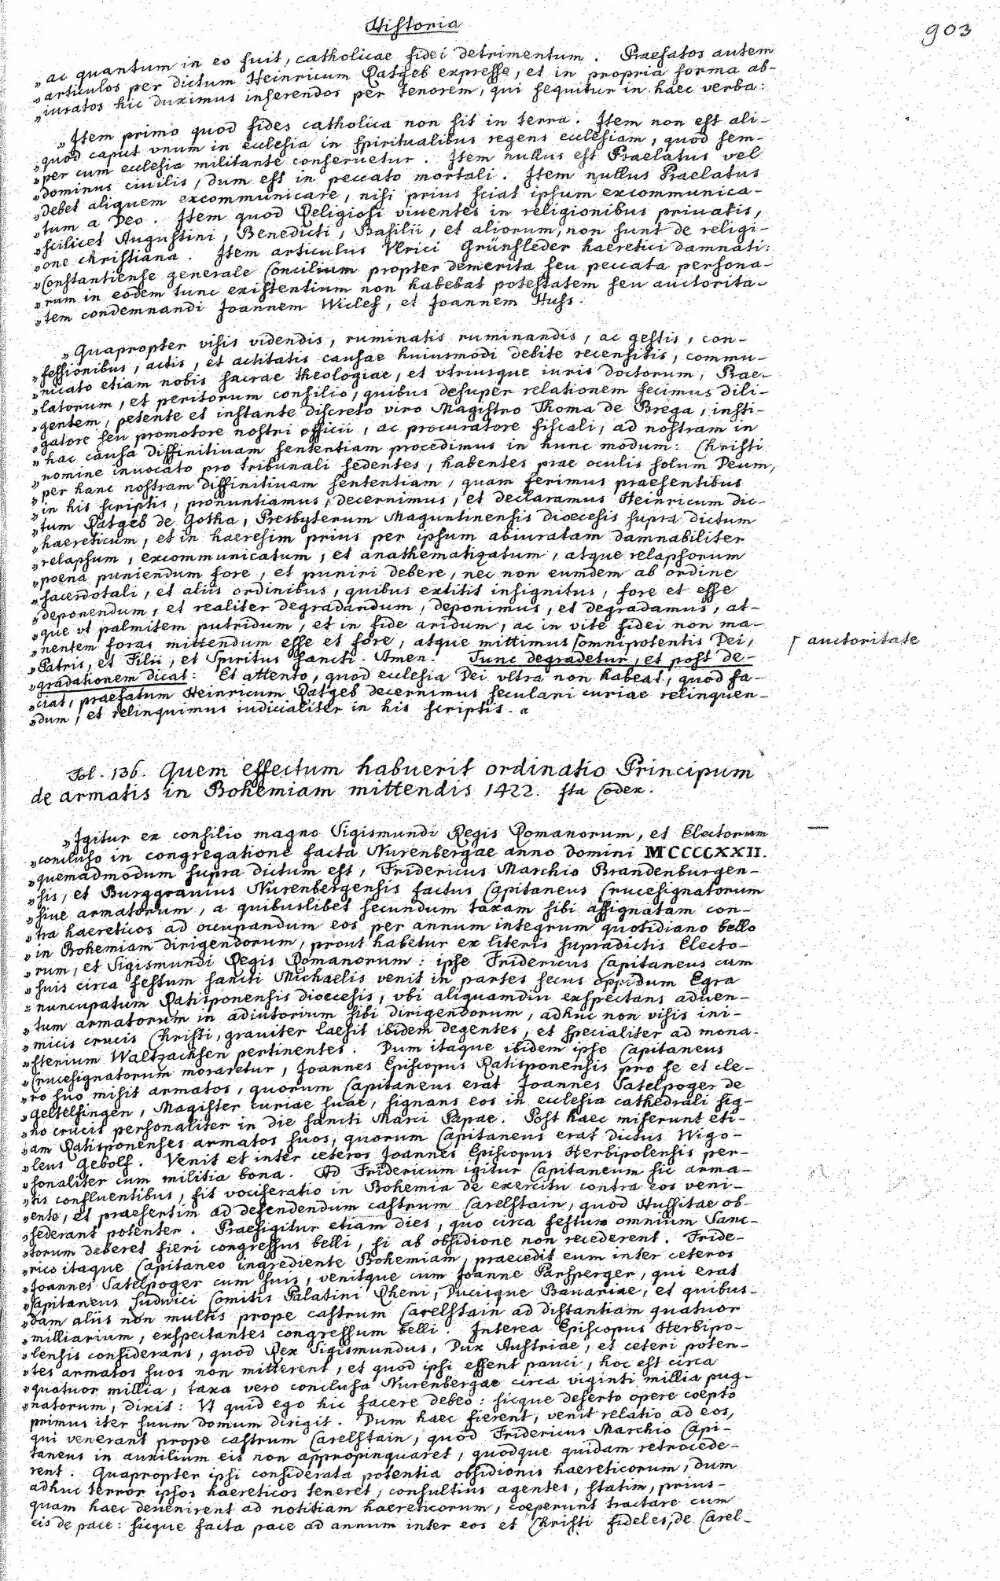 Historia
903
„ac quantum in eo fuit, catholicae fidei detrimentum. Praefatos autem
„articulos per dictum Heinricum Ratgeb expresse, et in propria forma ab-
„iuratos hic duximus inserendos per tenorem, qui sequitur in haec verba:
„Item primo quod fides catholica non sit in terra. Item non est ali-
„quod caput vnum in ecclesia in spiritualibus regens ecclesiam, quod sem-
„per cum ecclesia militante conseruetur. Item nullus est Praelatus vel
„dominus ciuilis, dum est in peccato mortali. Item nullus Praelatus
„debet aliquem excommunicare, nisi prius sciat ipsum excommunica-
„tum a Deo. Item quod Religiosi viuentes in religionibus priuatis,
„scilicet Augustini, Benedicti, Basilii, et aliorum, non sunt de religi-
„one christiana. Item articulus Ulrici Grünsleder haeretici damnati:
„Constantiense generale Concilium propter demerita seu peccata persona-
„rum in eodem tunc existentium non habebat potestatem seu auctorita-
„tem condemnandi Joannem Wiclef, et Joannem Huss.
„Quapropter visis videndis, ruminatis ruminandis, ac gestis, con-
„fessionibus, actis, et actitatis causae huiusmodi debite recensitis, commu-
„nicato etiam nobis sacrae theologiae, et vtriusque iuris doctorum, Prae-
„latorum, et peritorum consilio, quibus desuper relationem fecimus dili-
„gentem, petente et instante discreto viro Magistro Thoma de Brega, insti-
„gatore seu promotore nostri officii, ac procuratore fiscali, ad nostram in
„hac causa diffinitiuam sententiam procedimus in hunc modum: Christi
„nomine inuocato pro tribunali sedentes, habentes prae oculis solum Deum,
„per hanc nostram diffinitiuam sententiam, quam ferimus praesentibus
„in his scriptis, pronuntiamus, decernimus, et declaramus Heinricum dic-
„tum Ratgeb de Gotha, Presbyterum Maguntinensis dioecesis supra dictum
„haereticum, et in haeresim prius per ipsum abiuratam damnabiliter
„relapsum, excommunicatum, et anathematizatum, atque relapsorum
„poena puniendum fore, et puniri debere, nec non eumdem ab ordine
„sacerdotali, et aliis ordinibus, quibus extitit insignitus, fore et esse
„deponendum, et realiter degradandum, deponimus, et degradamus, at-
„que vt palmitem putridum, et in fide aridum, ac in vite fidei non ma-
„nentem foras mittendum esse et fore, atque mittimus ⌈omnipotentis Dei,
⌈ auctoritate
„Patris, et Filii, et Spiritus sancti. Amen. Tunc degradetur, et post de-
„gradationem dicat: Et attento, quod ecclesia Dei vltra non habeat, quod fa-
„ciat, praefatum Heinricum Ratgeb decernimus seculari curiae relinquen-
„dum, et relinquimus iudicialiter in his scriptis.
Fol. 136. Quem effectum habuerit ordinatio Principum
de armatis in Bohemiam mittendis 1422. Ita Codex.
„Igitur ex consilio magno Sigismundi Regis Romanorum, et Electorum
„concluso in congregatione facta Nurenbergae anno Domini MCCCCXXII.
„quemadmodum supra dictum est, Fridericus Marchio Brandenburgen-
„sis, et Burggrauius Nurenbergensis factus Capitaneus Crucesignatorum
„siue armatorum, a quibuslibet secundum taxam sibi assignatam con-
„tra haereticos ad occupandum eos per annum integrum quotidiano bello
„in Bohemiam dirigendorum, prout habetur ex literis supradictis Electo-
„rum, et Sigismundi Regis Romanorum: ipse Fridericus Capitaneus cum
„suis circa festum sancti Michaelis venit in partes secus oppidum Egra
„nuncupatum Ratisponensis dioecesis, vbi aliquamdiu exspectans aduen-
„tum armatorum in adiutorium sibi dirigendorum, adhuc non visis ini-
„micis crucis Christi, grauiter laesit ibidem degentes, et specialiter ad mona-
„sterium Waltsachsen pertinentes. Dum itaque ibidem ipse Capitaneus
„Crucesignatorum moraretur, Joannes Episcopus Ratisponensis pro se et cle-
„ro suo misit armatos, quorum Capitaneus erat Joannes Satelpoger de
„Geltelfingen, Magister curiae suae, signans eos in ecclesia cathedrali sig-
„no crucis personaliter in die sancti Marci Papae. Post haec miserunt eti-
„am Ratisponenses armatos suos, quorum Capitaneus erat dictus Wigo-
„leus Gebolf. Venit et inter ceteros Joannes Episcopus Herbipolensis per-
„sonaliter cum militia bona. Ad Fridericum igitur Capitaneum sic arma-
„tis confluentibus, fit vociferatio in Bohemia de exercitu contra eos veni-
„ente, et praesertim ad defendendum castrum Carelstain, quod Hussitae ob-
„sederant potenter. Praefigitur etiam dies, quo circa festum omnium Sanc-
„torum deberet fieri congressus belli, si ab obsidione non recederent. Fride-
„rico itaque Capitaneo ingrediente Bohemiam, praecedit eum inter ceteros
„Joannes Satelpoger cum suis, venitque cum Joanne Parsperger, qui erat
„Capitaneus Ludwici Comitis Palatini Rheni, Ducisque Bauariae, et quibus-
„dam aliis non multis prope castrum Carelstain ad distantiam quatuor
„milliarium, exspectantes congressum belli. Interea Episcopus Herbipo-
„lensis considerans, quod Rex Sigismundus, Dux Austriae, et ceteri poten-
„tes armatos suos non mitterent, et quod ipsi essent pauci, hoc est circa
„quatuor millia, taxa vero conclusa Nurenbergae circa viginti millia pug-
„natorum, dixit: Vt quid ego hic facere debeo: sicque deserto opere coepto
primus iter suum domum dirigit. Dum haec fierent, venit relatio ad eos,
qui venerant prope castrum Carelstain, quod Fridericus Marchio Capi-
taneus in auxilium eis non appropinquaret, quodque quidam retrocede-
rent. Quapropter ipsi considerata potentia obsidionis haereticorum, dum
adhuc terror ipsos haereticos teneret, consultius agentes, statim, prius-
quam haec deuenirent ad notitiam haereticorum, coeperunt tractare cum
eis de pace: sicque facta pace ad annum inter eos et Christi fideles, de Carel-